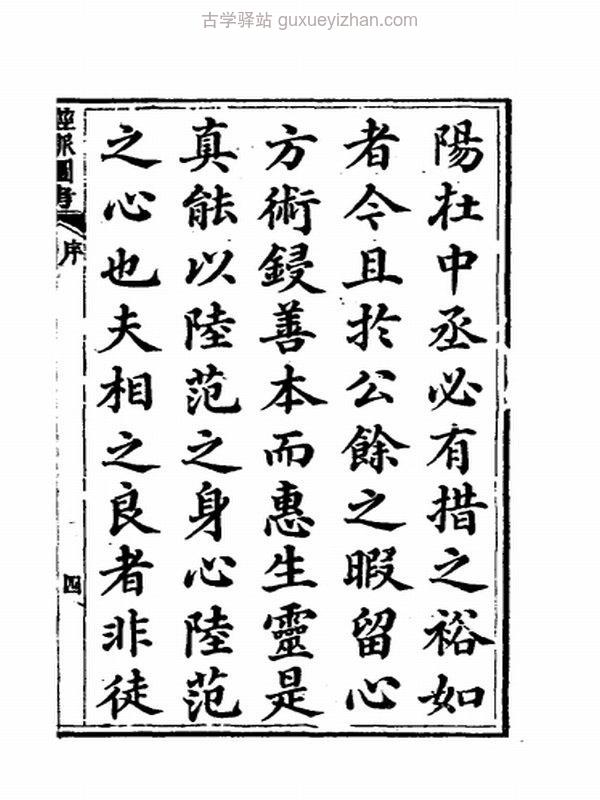 古学驿站 guxueyizhan.com
陽杜中丞必有措之裕如
者今且於公餘之暇留心
方術鋟善本而惠生靈是
真能以陸范之身心陸范
之心也夫相之良者非徒
經脈圖考
序
四